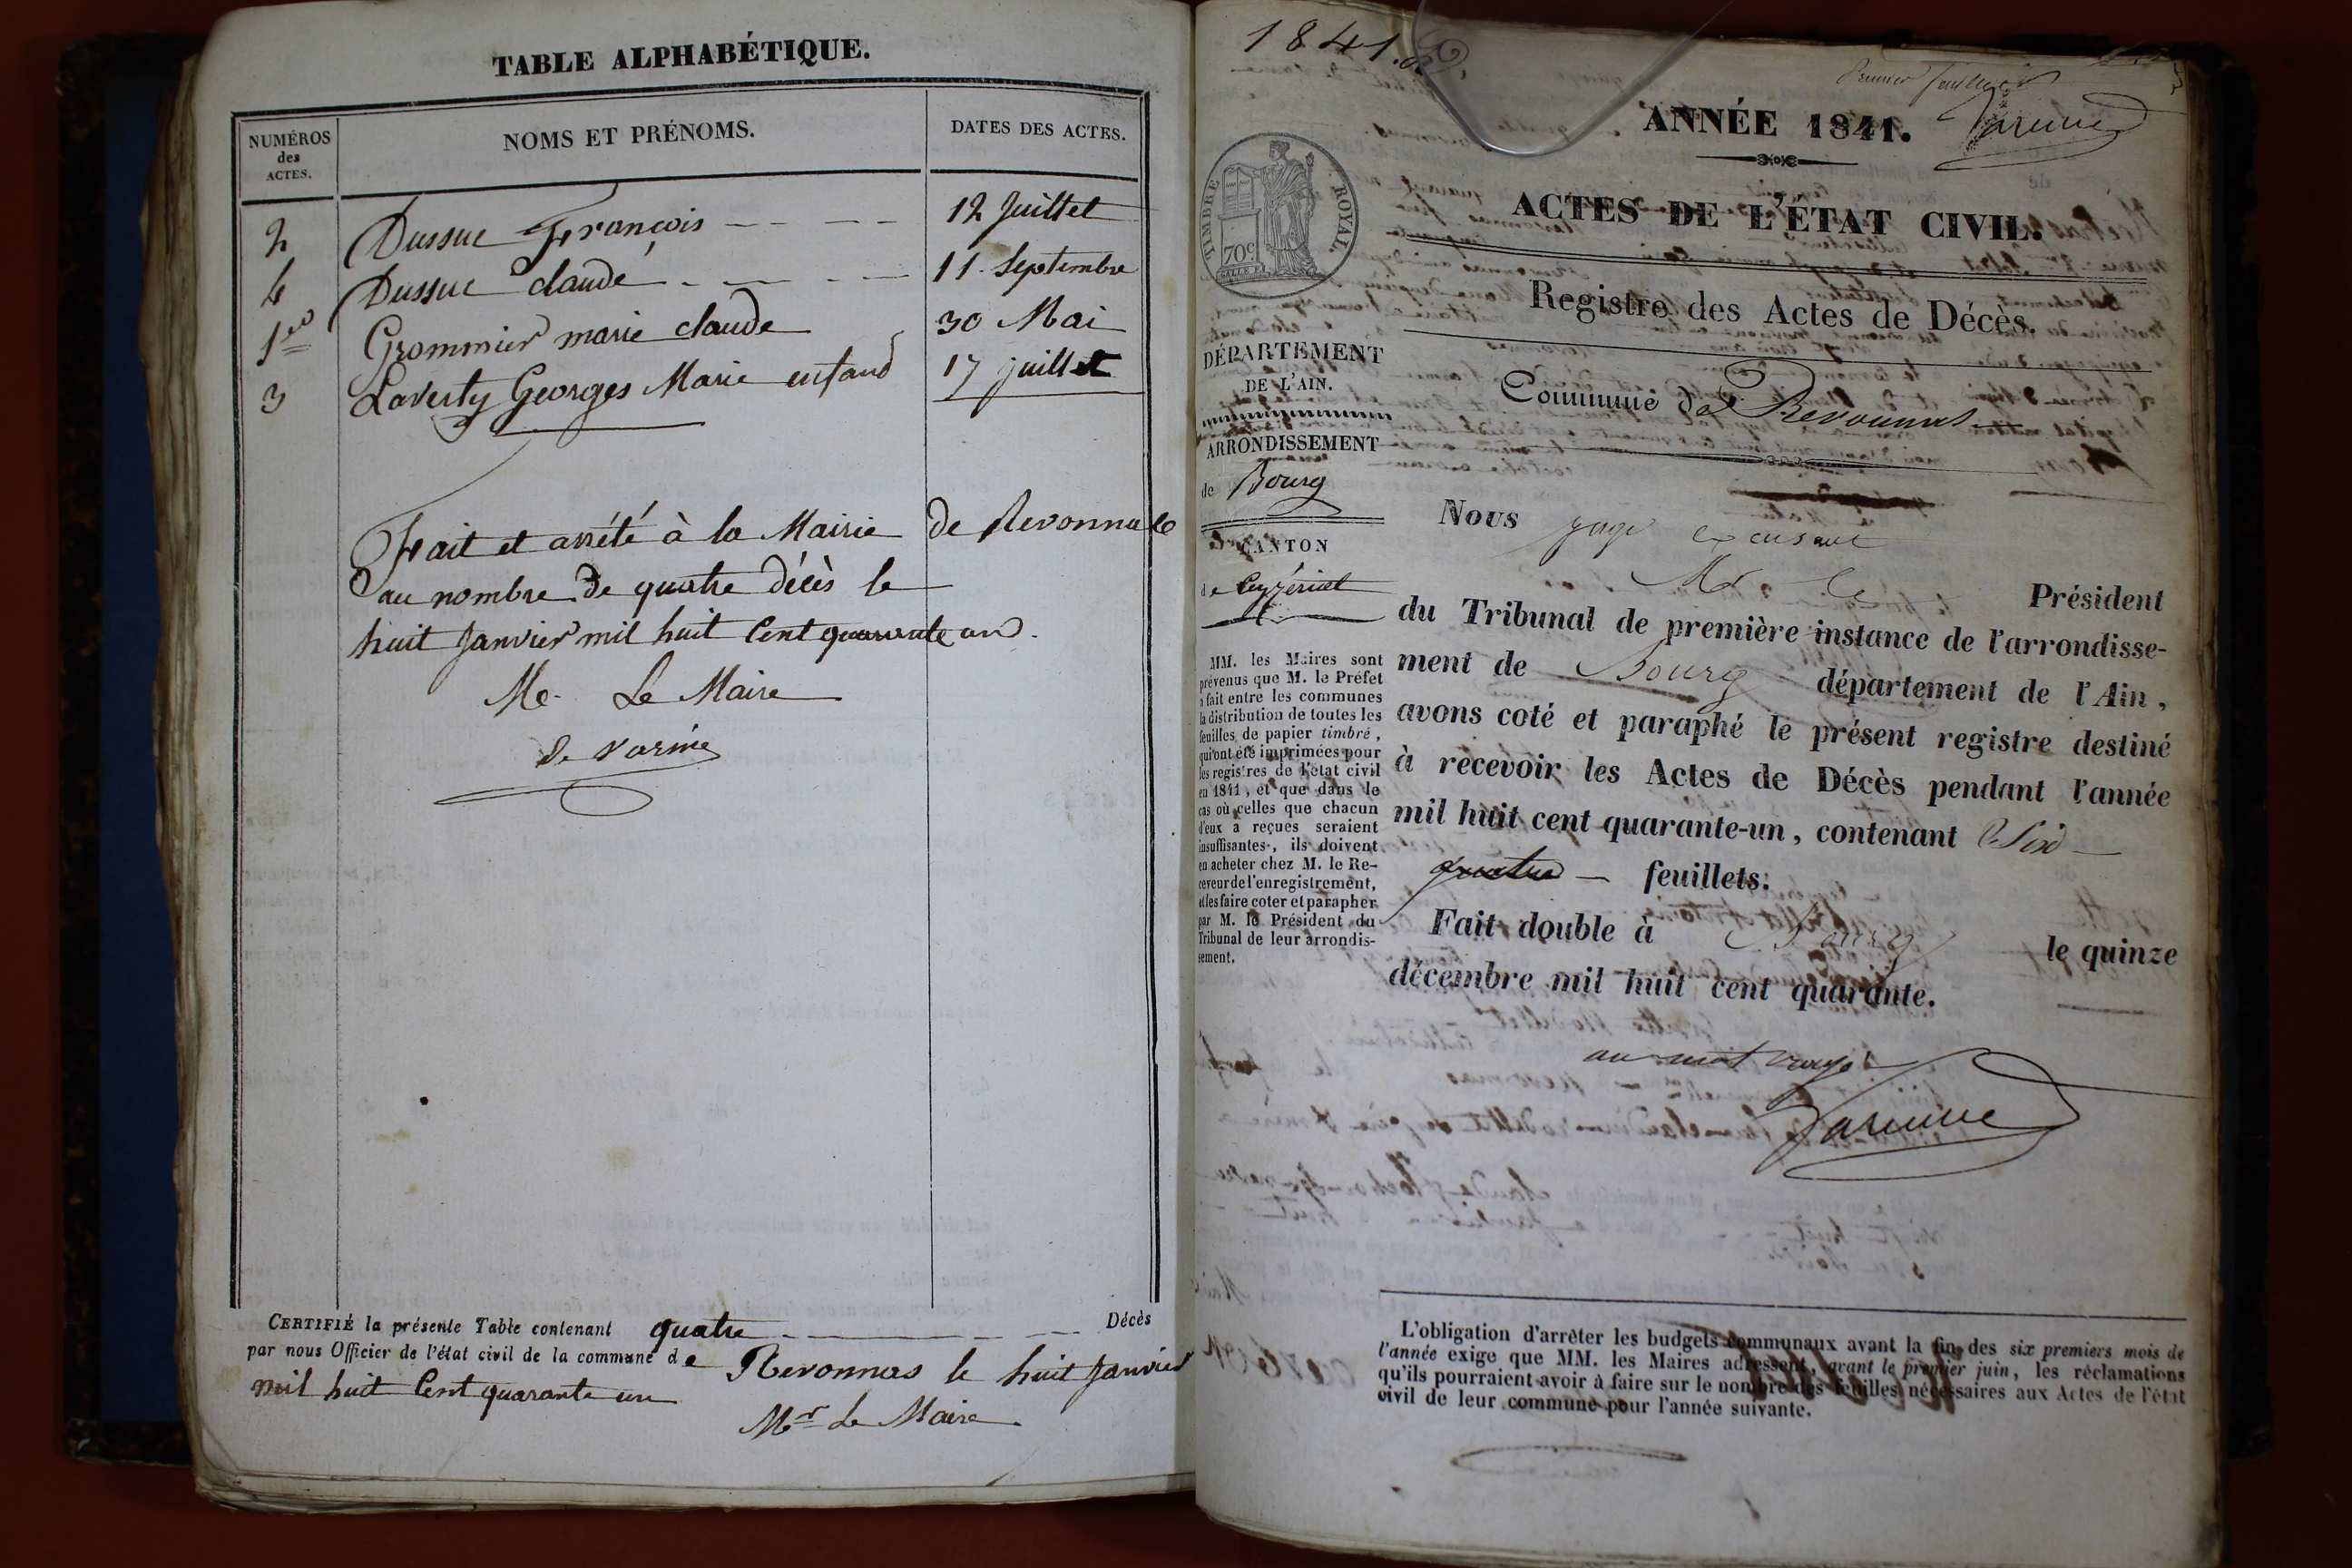 TABLE ALPHABÉTIQUE.
NUMÉROS des ACTES.
NOMS ET PRÉNOMS.
DATES DES ACTES.
2 Dussuc François 12 Juillet
4 Dussuc claude 11 Septembre
1er Grommier marie claude 30 Mai
3 Laverty Georges Marie enfand 17 juillet
Fait et arrété à la Mairie de Revonnas
au nombre de quatre décès le
huit Janvier mil huit Cent quarante un.
Le Maire
CERTIFIÉ la présente Table contenant quatre Décès
par nous Officier de l'état civil de la commune de Revonnas le huit Janvier
mil huit Cent quarante un
Mr Le Maire
1841.
premier feuillet
ANNÉE 1841.
ACTES DE L'ÉTAT CIVIL.
Registre des Actes de Décès.
Commune de Revonnas
TIMBRE ROYAL.
70c
DÉPARTEMENT
DE L'AIN.
ARRONDISSEMENT
de Bourg
CANTON
de Ceyzériat
MM. les Maires sont
prévenus que M. le Préfet
a fait entre les communes
la distribution de toutes les
feuilles de papier timbré,
qui ont été imprimées pour
les registres de l'état civil
en 1841, et que dans le
cas où celles que chacun
d'eux a reçues seraient
insuffisantes, ils doivent
en acheter chez M. le Re-
ceveur de l'enregistrement,
et les faire coter et parapher
par M. le Président du
Tribunal de leur arrondis-
sement.
Nous juge
Président
du Tribunal de première instance de l'arrondisse-
ment de Bourg département de l'Ain,
avons coté et paraphé le présent registre destiné
à recevoir les Actes de Décès pendant l'année
mil huit cent quarante-un, contenant Six
quatre feuillets.
Fait double à Bourg le quinze
décembre mil huit cent quarante.
L'obligation d'arrêter les budgets communaux avant la fin des six premiers mois de
l'année exige que MM. les Maires adressent, avant le premier juin, les réclamations
qu'ils pourraient avoir à faire sur le nombre des feuilles nécessaires aux Actes de l'état
civil de leur commune pour l'année suivante.